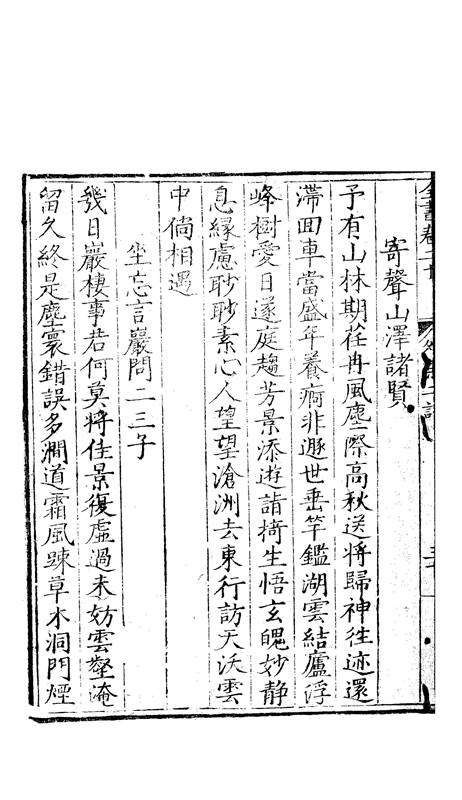 寄聲山澤諸賢
予有山林期荏冉風塵際高秋送將歸神往迹還
滯囬車當盛年養痾非遯世垂竿鑑湖雲結廬浮
峰樹愛日遂庭趨芳景添遊詣掎生悟玄魄妙静
息緣慮眇眇素心人望望滄洲去東行訪天沃雲
中倘相遇
坐忘言巖問二三子
幾日巖棲事若何莫將佳景復虛過未妨雲壑淹
留久終是塵寰錯誤多澗道霜風踈草木洞門煙